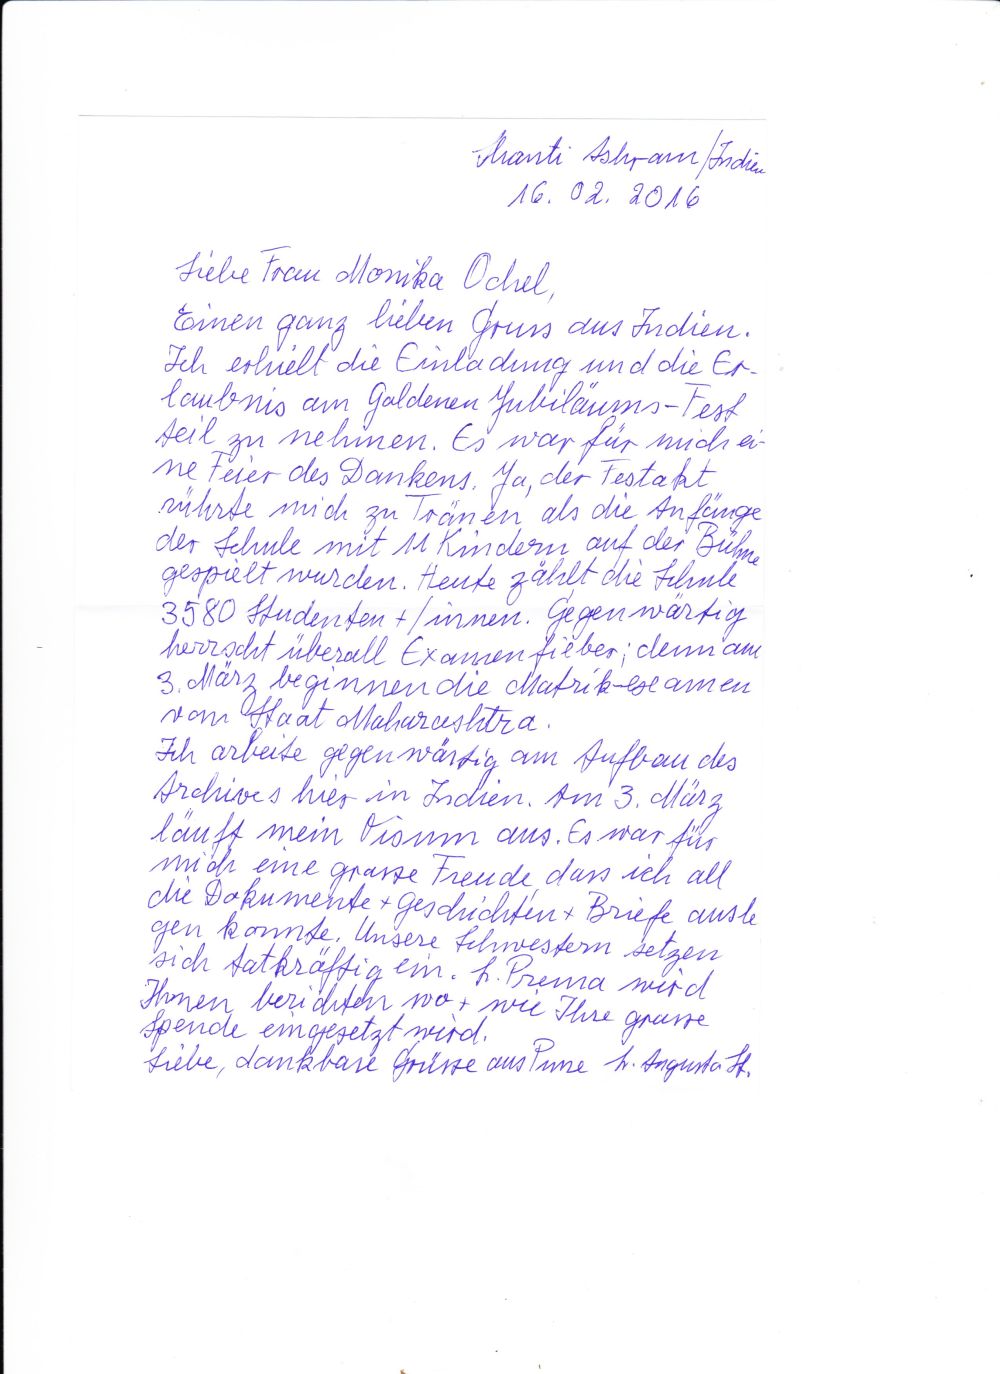 Shanti Ashram/Indien
16. 02. 2016
Liebe Frau Monika Ochel,
Einen ganz lieben Gruss aus Indien.
Ich erhielt die Einladung und die Er-
laubnis am Goldenen Jubiläums-Fest
teil zu nehmen. Es war für mich ei-
ne Feier des Dankens. Ja, der Festakt
rührte mich zu Tränen als die Anfänge
der Schule mit 11 Kindern auf der Bühne
gespielt wurden. Heute zählt die Schule
3580 Studenten+/innen. Gegenwärtig
herrscht überall Examenfieber; denn am
3. März beginnen die Matrik-examen
vom Staat Maharashtra.
Ich arbeite gegenwärtig am Aufbau des
Archives hier in Indien. Am 3. März
läuft mein Visum aus. Es war für
mich eine grosse Freude, dass ich all
die Dokumente + Geschichten + Briefe ausle
gen konnte. Unsere Schwestern setzen
sich tatkräftig ein. Sr. Prema wird
Ihnen berichten wo + wie Ihre grosse
Spende eingesetzt wird.
Liebe, dankbare Grüsse aus Pune Sr. Augusta St.